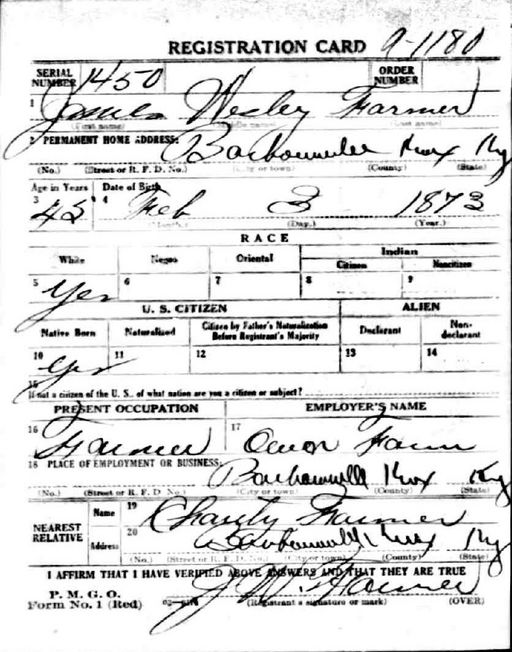 REGISTRATION CARD 9-1180
SERIAL NUMBER 1450 ORDER NUMBER
1 James Wesley Farmer
(First name) (Middle name) (Last name)
2 PERMANENT HOME ADDRESS: Barbourville Knox Ky
(No.) (Street or R. F. D. No.) (City or town) (County) (State)
Age in Years Date of Birth
3 45 4 Feb 3 1873
(Month.) (Day.) (Year.)
RACE
White Negro Oriental Indian
Citizen Noncitizen
5 Yes 6 7 8 9
U. S. CITIZEN ALIEN
Native Born Naturalized Citizen by Father's Naturalization Before Registrant's Majority Declarant Non-declarant
10 Yes 11 12 13 14
15
If not a citizen of the U. S., of what nation are you a citizen or subject?
PRESENT OCCUPATION EMPLOYER'S NAME
16 Farmer 17 Own Farm
18 PLACE OF EMPLOYMENT OR BUSINESS: Barbourville Knox Ky
(No.) (Street or R. F. D. No.) (City or town) (County) (State)
NEAREST RELATIVE Name 19 Charity Farmer
Address 20 Barbourville Knox Ky
(No.) (Street or R. F. D. No.) (City or town) (County) (State)
I AFFIRM THAT I HAVE VERIFIED ABOVE ANSWERS AND THAT THEY ARE TRUE
P. M. G. O.
Form No. 1 (Red) J W Farmer
(Registrant's signature or mark) (OVER)